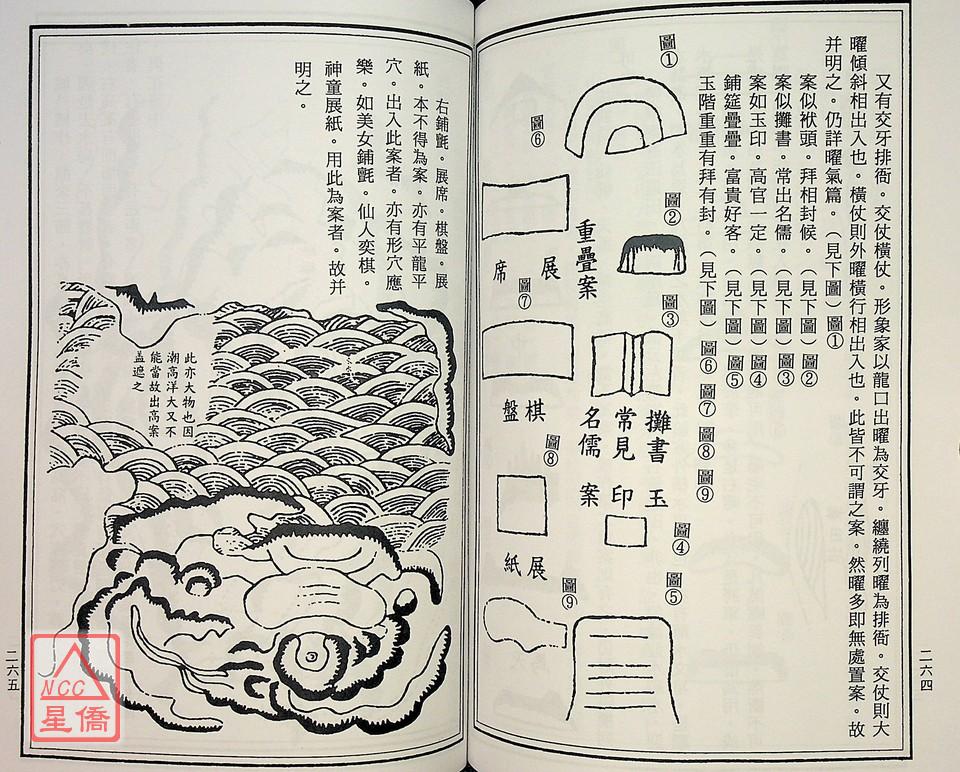 又有交牙排衙。交仗橫仗。形象家以龍口出曜為交牙。纏繞列曜為排衙。交仗則大
曜傾斜相出入也。橫仗則外曜橫行相出入也。此皆不可謂之案。然曜多即無處置案。故
并明之。仍詳曜氣篇。（見下圖）圖①
案似袱頭。拜相封候。（見下圖）圖②
案似攤書。常出名儒。（見下圖）圖③
案如玉印。高官一定。（見下圖）圖④
鋪筵疊疊。富貴好客。（見下圖）圖⑤
玉階重重有拜有封。（見下圖）圖⑥圖⑦圖⑧圖⑨
圖①
圖②
圖③
攤書
常見
名儒
玉
印
案
圖④
圖⑤
重疊案
圖⑥
展
席
圖⑦
棋
盤
圖⑧
展
紙
圖⑨
二六四
右鋪氈。展席。棋盤。展
紙。本不得為案。亦有平龍平
穴。出入此案者。亦有形穴應
樂。如美女鋪氈。仙人奕棋。
神童展紙。用此為案者。故并
明之。
此亦大物也因
潮高洋大又不
能當故出高案
盖遮之
二六五
NCC
星僑